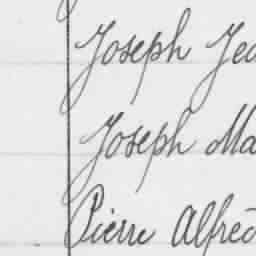 Joseph Jea
Joseph Ma
Pierre Alfred